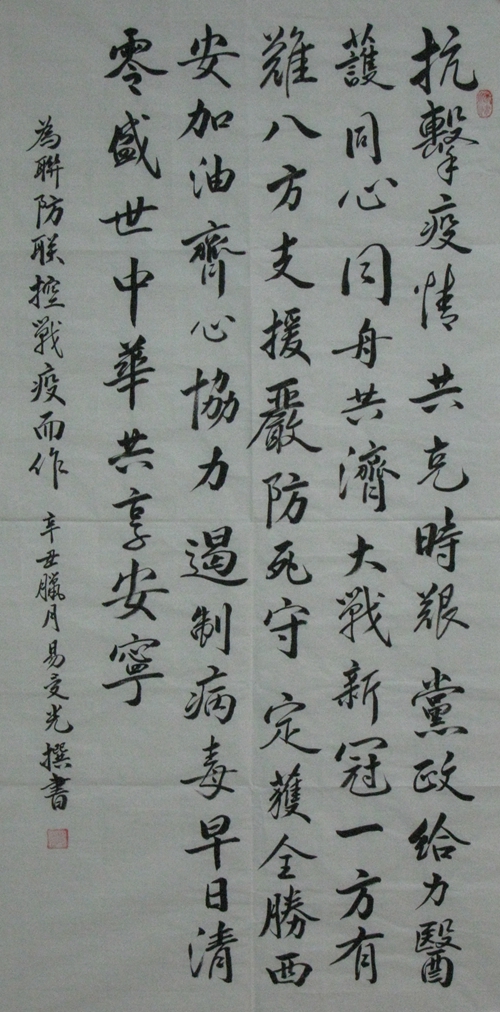 抗擊疫情共克時艱黨政給力醫
護同心同舟共濟大戰新冠一方有
難八方支援嚴防死守定獲全勝西
安加油齊心協力遏制病毒早日清
零盛世中華共享安寧
為聯防联控戰疫而作 辛丑臘月易變光撰書